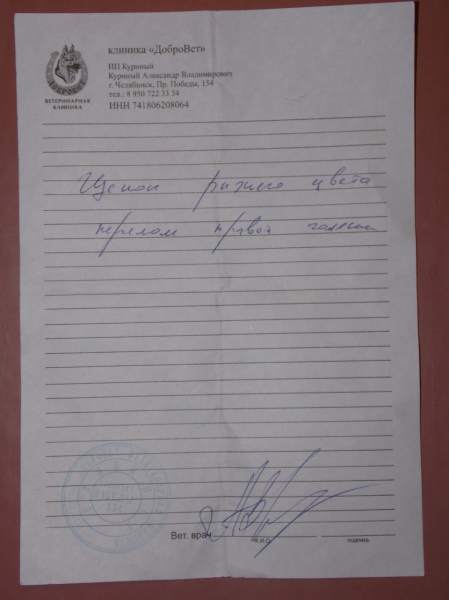 клиника «ДоброВет»
ИП Куриный
Куриный Александр Владимирович
г. Челябинск, Пр. Победы, 154
тел.: 8 950 722 33 54
ИНН 741806208064
ВЕТЕРИНАРНАЯ
КЛИНИКА
Щенок рыжего цвета
перелом правой голени
Вет. врач
Ф.И.О.
подпись